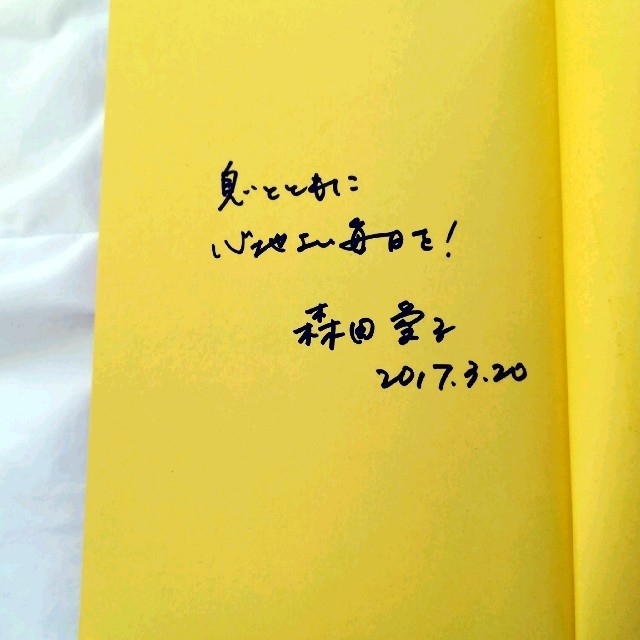 息とともに
心地よい毎日を！
森田愛子
2017.3.20